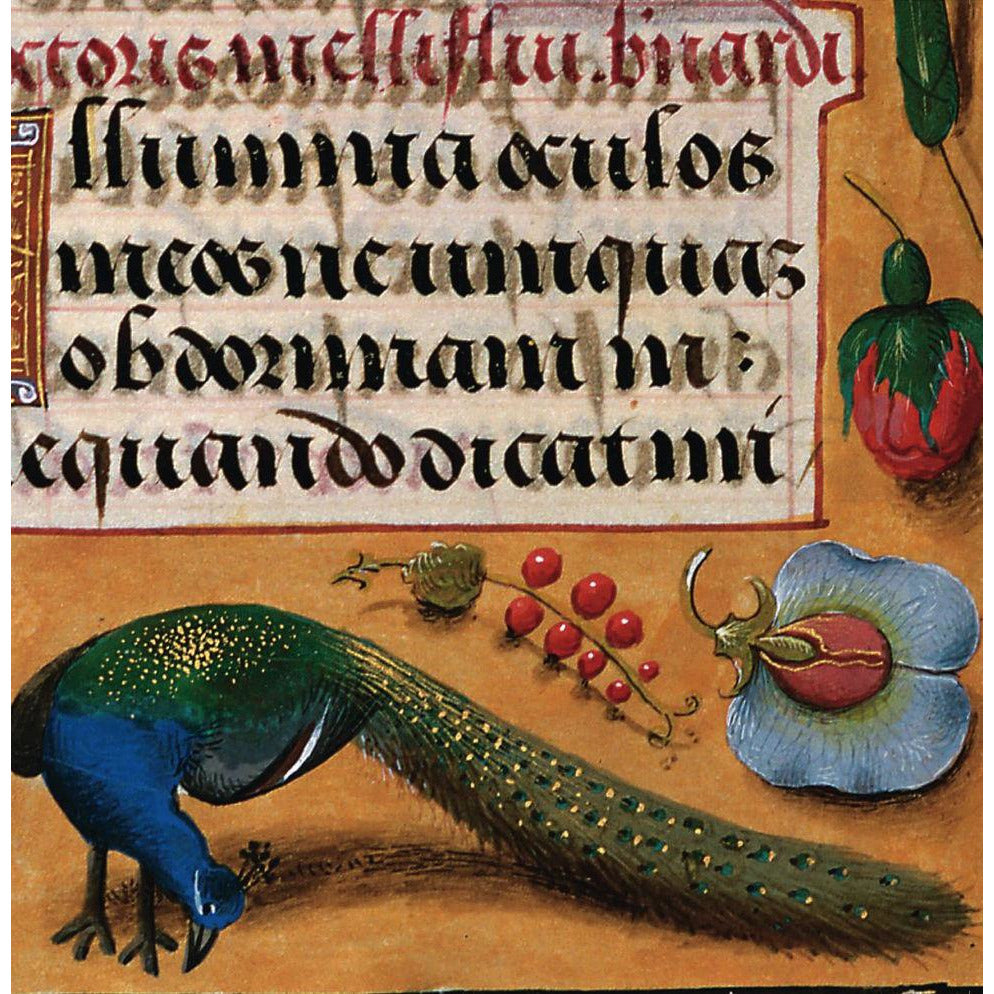 ctoris melliflui. bnardi.
Illumina oculos
meos ne umquaʒ
obdormiam in :
equando dicat ini